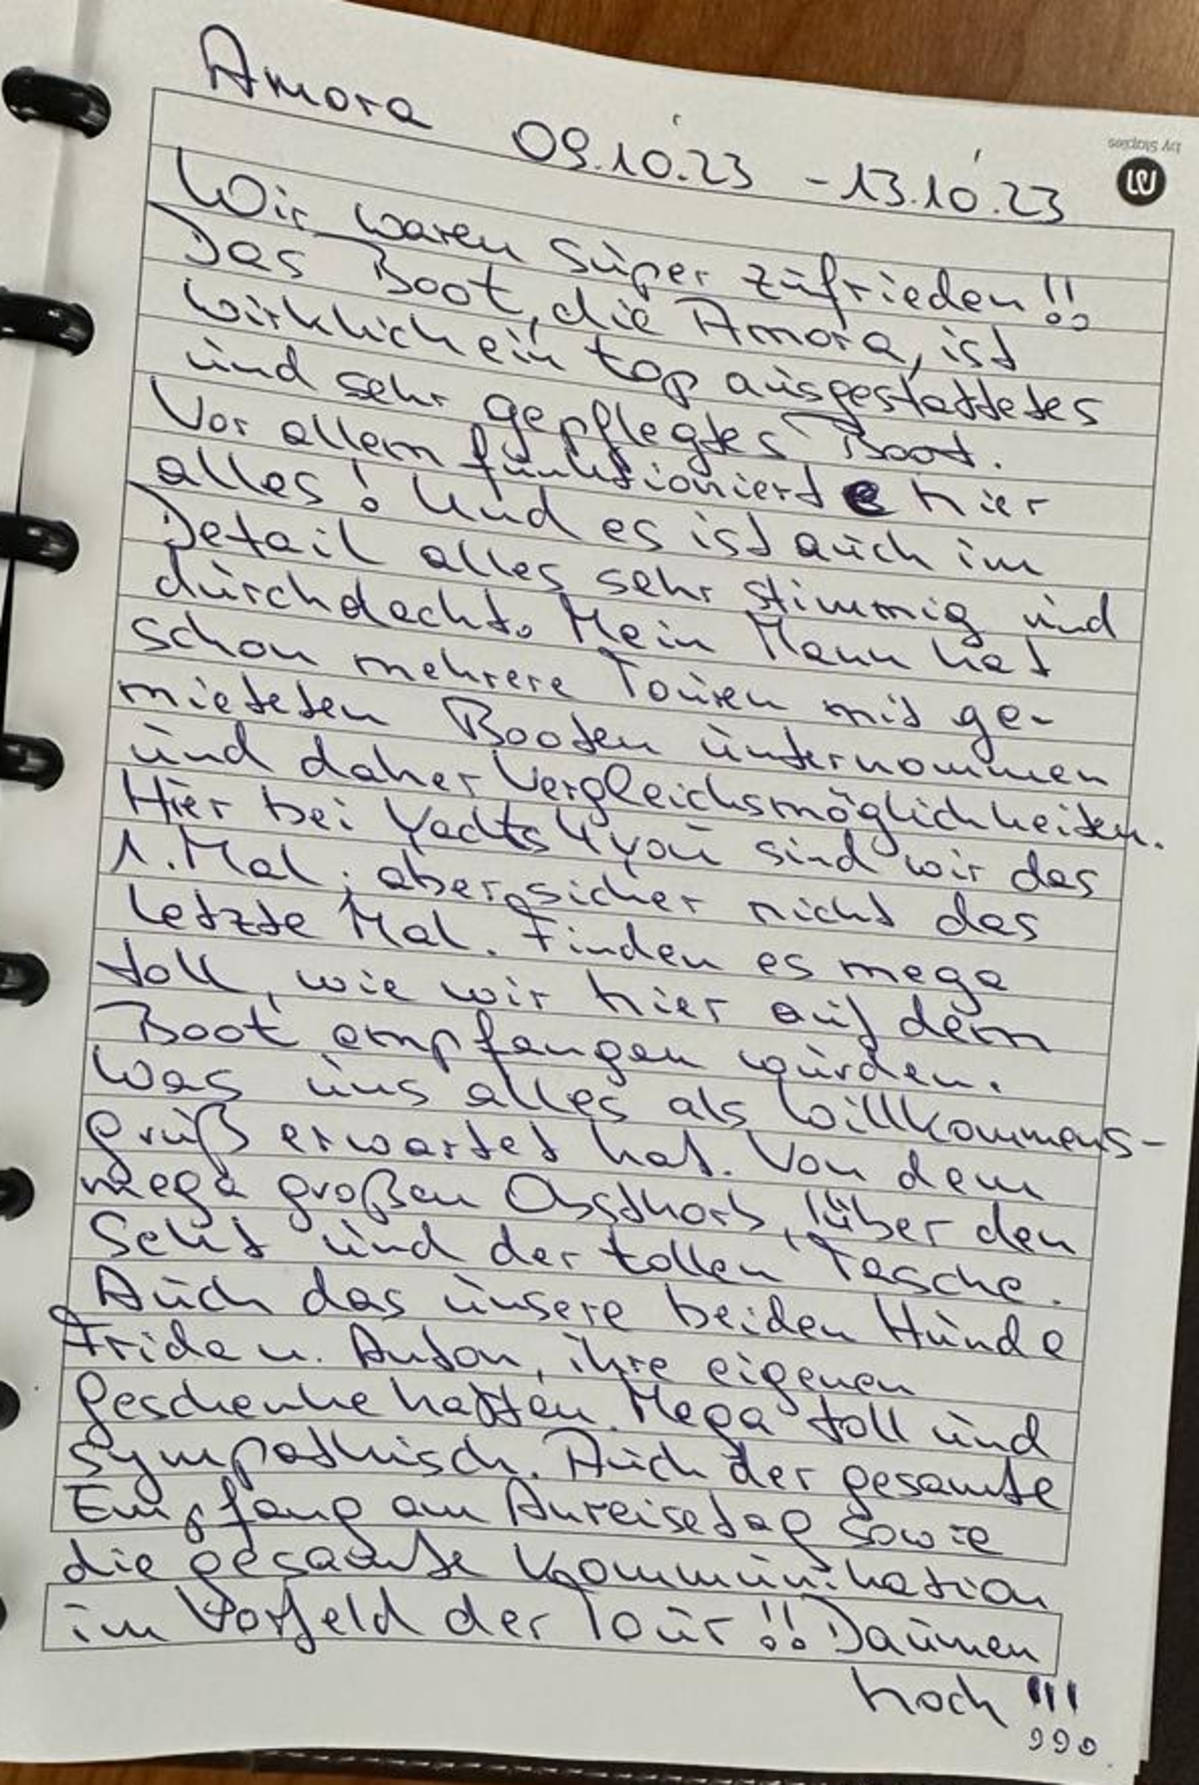 Amora 09.10.23 - 13.10.23
by Staples
Wir waren super zufrieden!!
Das Boot, die Amora, ist
wirklich ein top ausgestattetes
und sehr gepflegtes Boot.
Vor allem funktioniert hier
alles! Und es ist auch im
Detail alles sehr stimmig und
durchdacht. Mein Mann hat
schon mehrere Touren mit ge-
mieteten Booten unternommen
und daher Vergleichsmöglichkeiten.
Hier bei Yachts4you sind wir das
1. Mal, aber sicher nicht das
letzte Mal. Finden es mega
toll, wie wir hier auf dem
Boot empfangen wurden.
Was uns alles als Willkommens-
gruß erwartet hat. Von dem
mega großen Obstkorb, über den
Sekt und der tollen Tasche.
Auch das unsere beiden Hunde
Frida u. Anton, ihre eigenen
Geschenke hatten. Mega toll und
sympathisch. Auch der gesamte
Empfang am Anreisetag sowie
die gesamte Kommunikation
im Vorfeld der Tour!! Daumen
hoch!!!